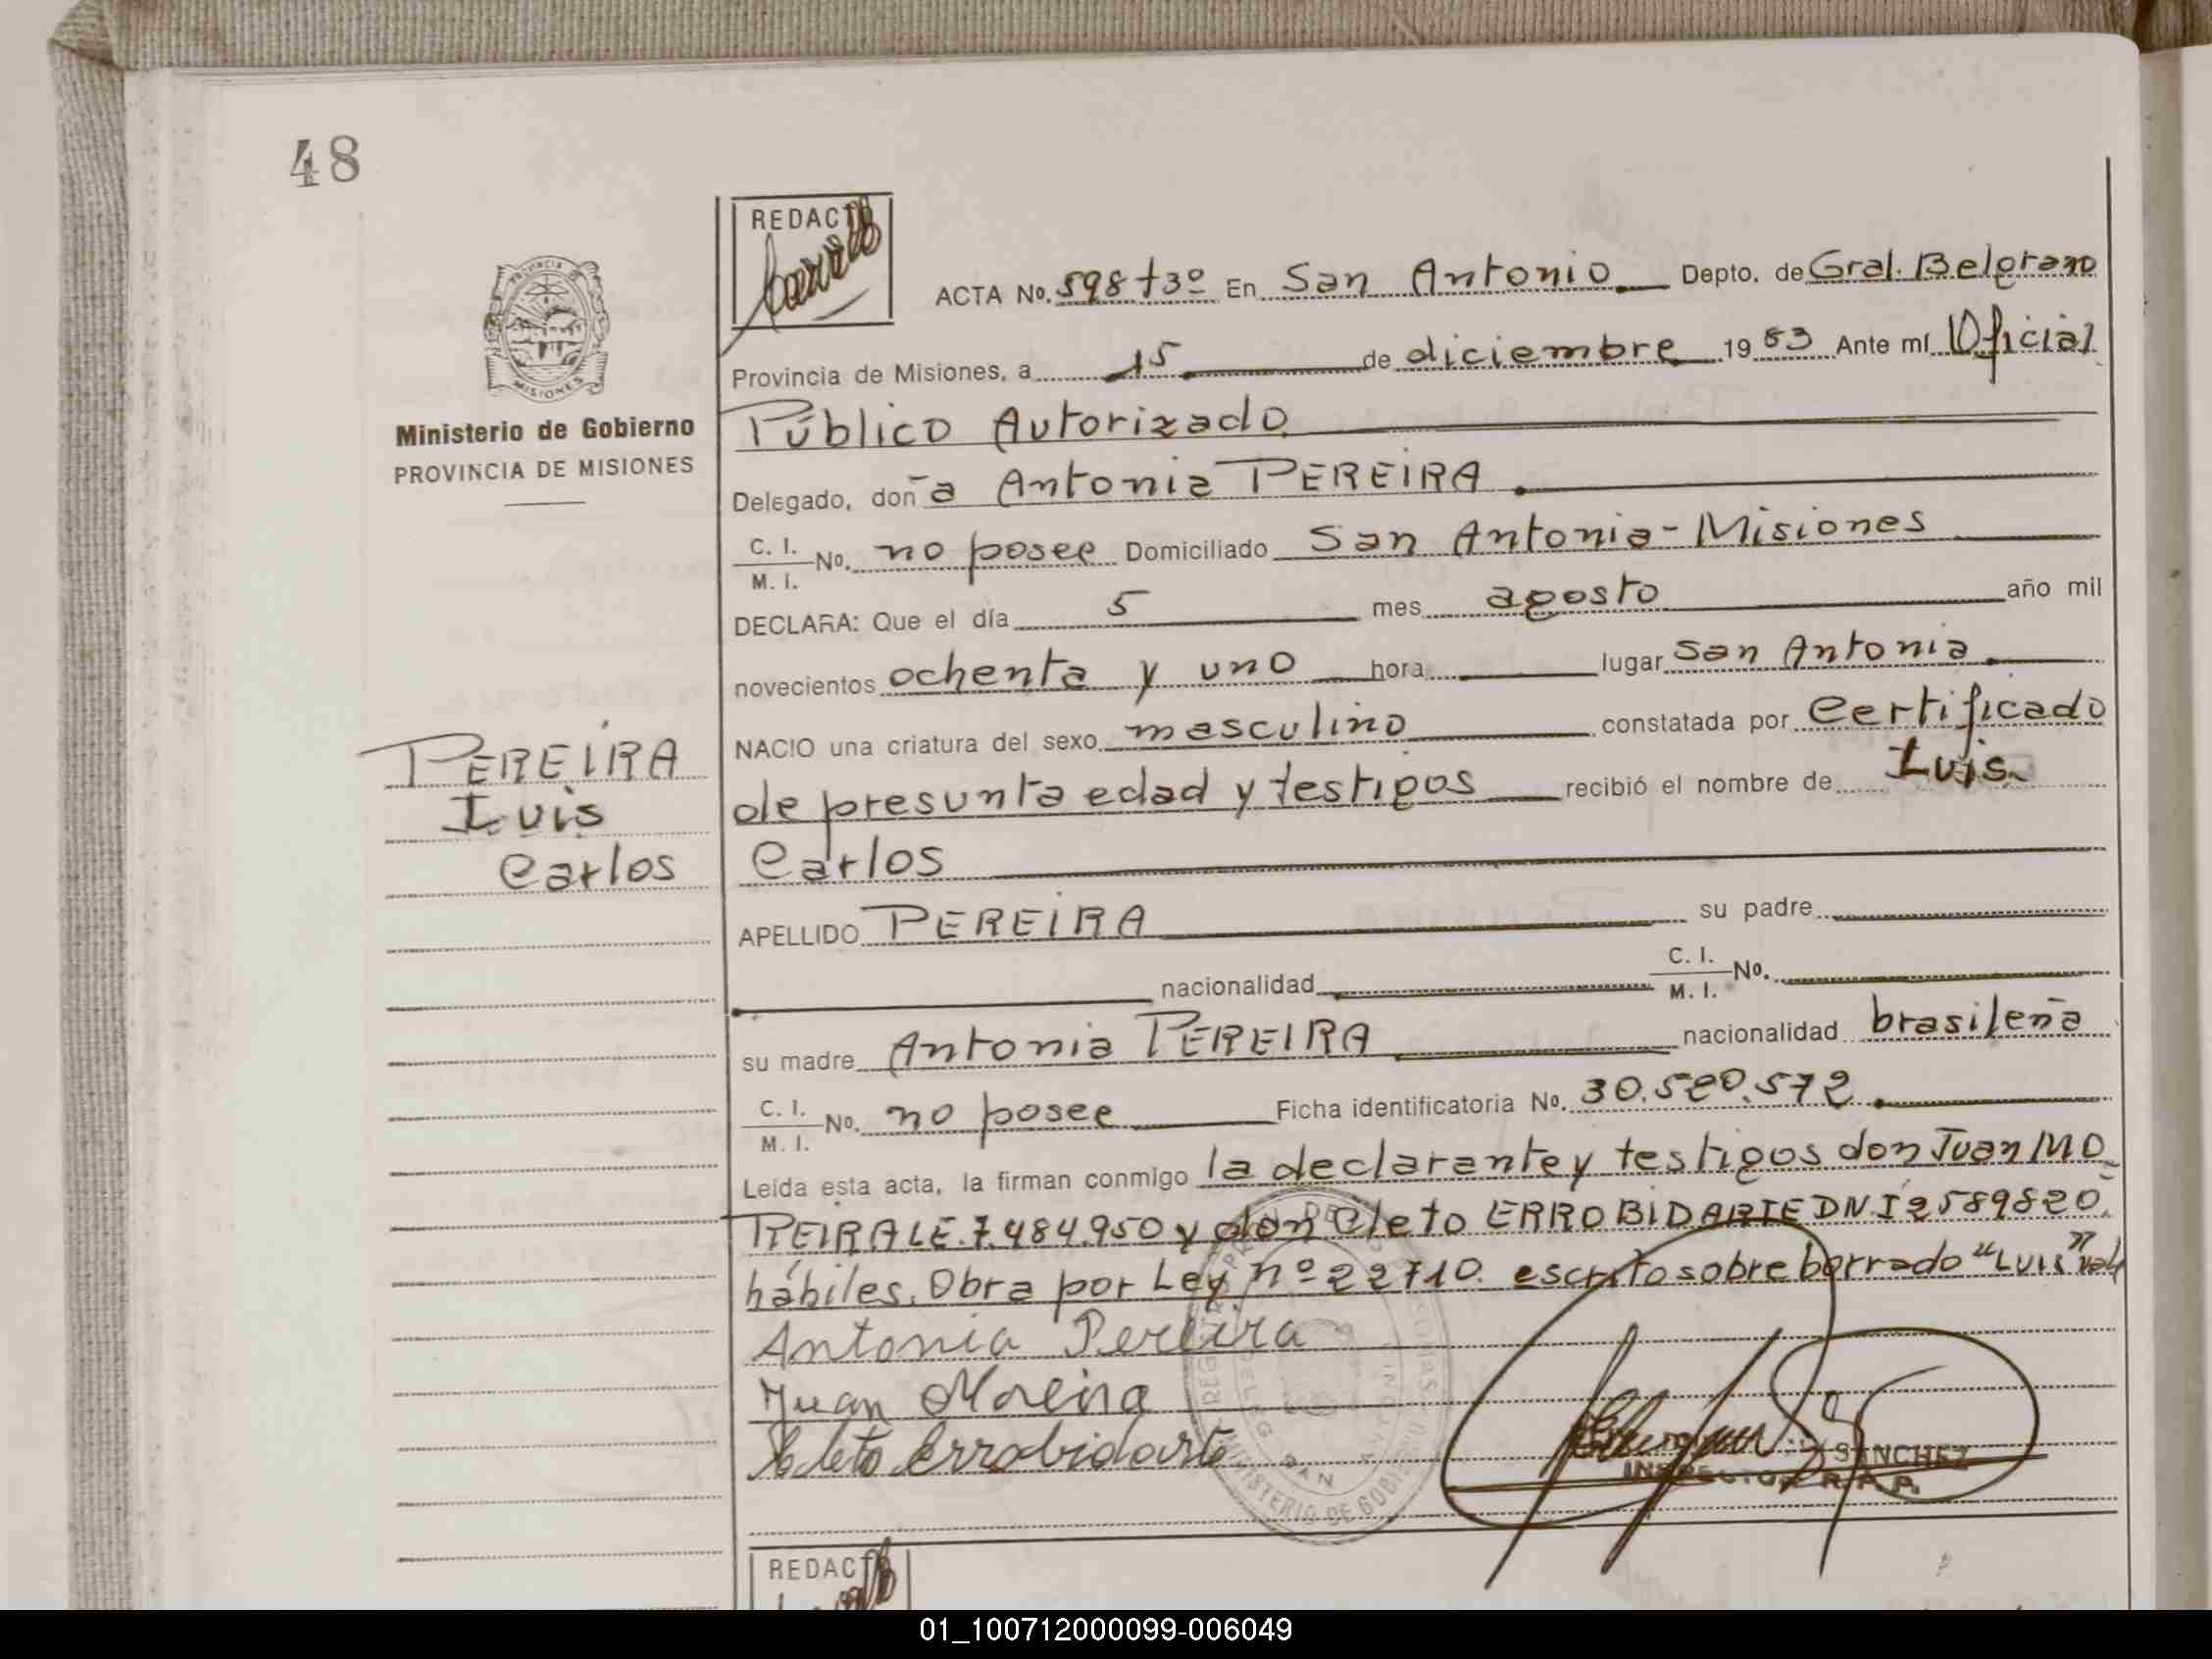 48
REDACTÓ
ACTA No. 598 t3º En San Antonio Depto. de Gral. Belgrano
Provincia de Misiones, a 15 de diciembre 1983 Ante mí Oficial
Público Autorizado
Delegado, doña Antonia PEREIRA
C. I.
M. I. No. no posee Domiciliado San Antonio - Misiones
DECLARA: Que el día 5 mes agosto año mil
novecientos ochenta y uno hora lugar San Antonio
NACIO una criatura del sexo masculino constatada por Certificado
de presunta edad y testigos recibió el nombre de Luis
Carlos
APELLIDO PEREIRA su padre
nacionalidad C. I.
M. I. No.
su madre Antonia PEREIRA nacionalidad brasileña
C. I.
M. I. No. no posee Ficha identificatoria No. 30.520.572.
Leída esta acta, la firman conmigo la declarante y testigos don Juan MO
REIRA LE. 7.484.950 y don Cleto ERROBIDARTE DNI 2589820.
hábiles. Obra por Ley nº 22710. escrito sobre borrado "Luis" vale
Antonia Pereira
Juan Moreira
Cleto Errobidarte
SANCHEZ
INSPECTOR R.P.P.
PROVINCIA DE
MISIONES
Ministerio de Gobierno
PROVINCIA DE MISIONES
PEREIRA
Luis
Carlos
REDACTÓ
01_100712000099-006049